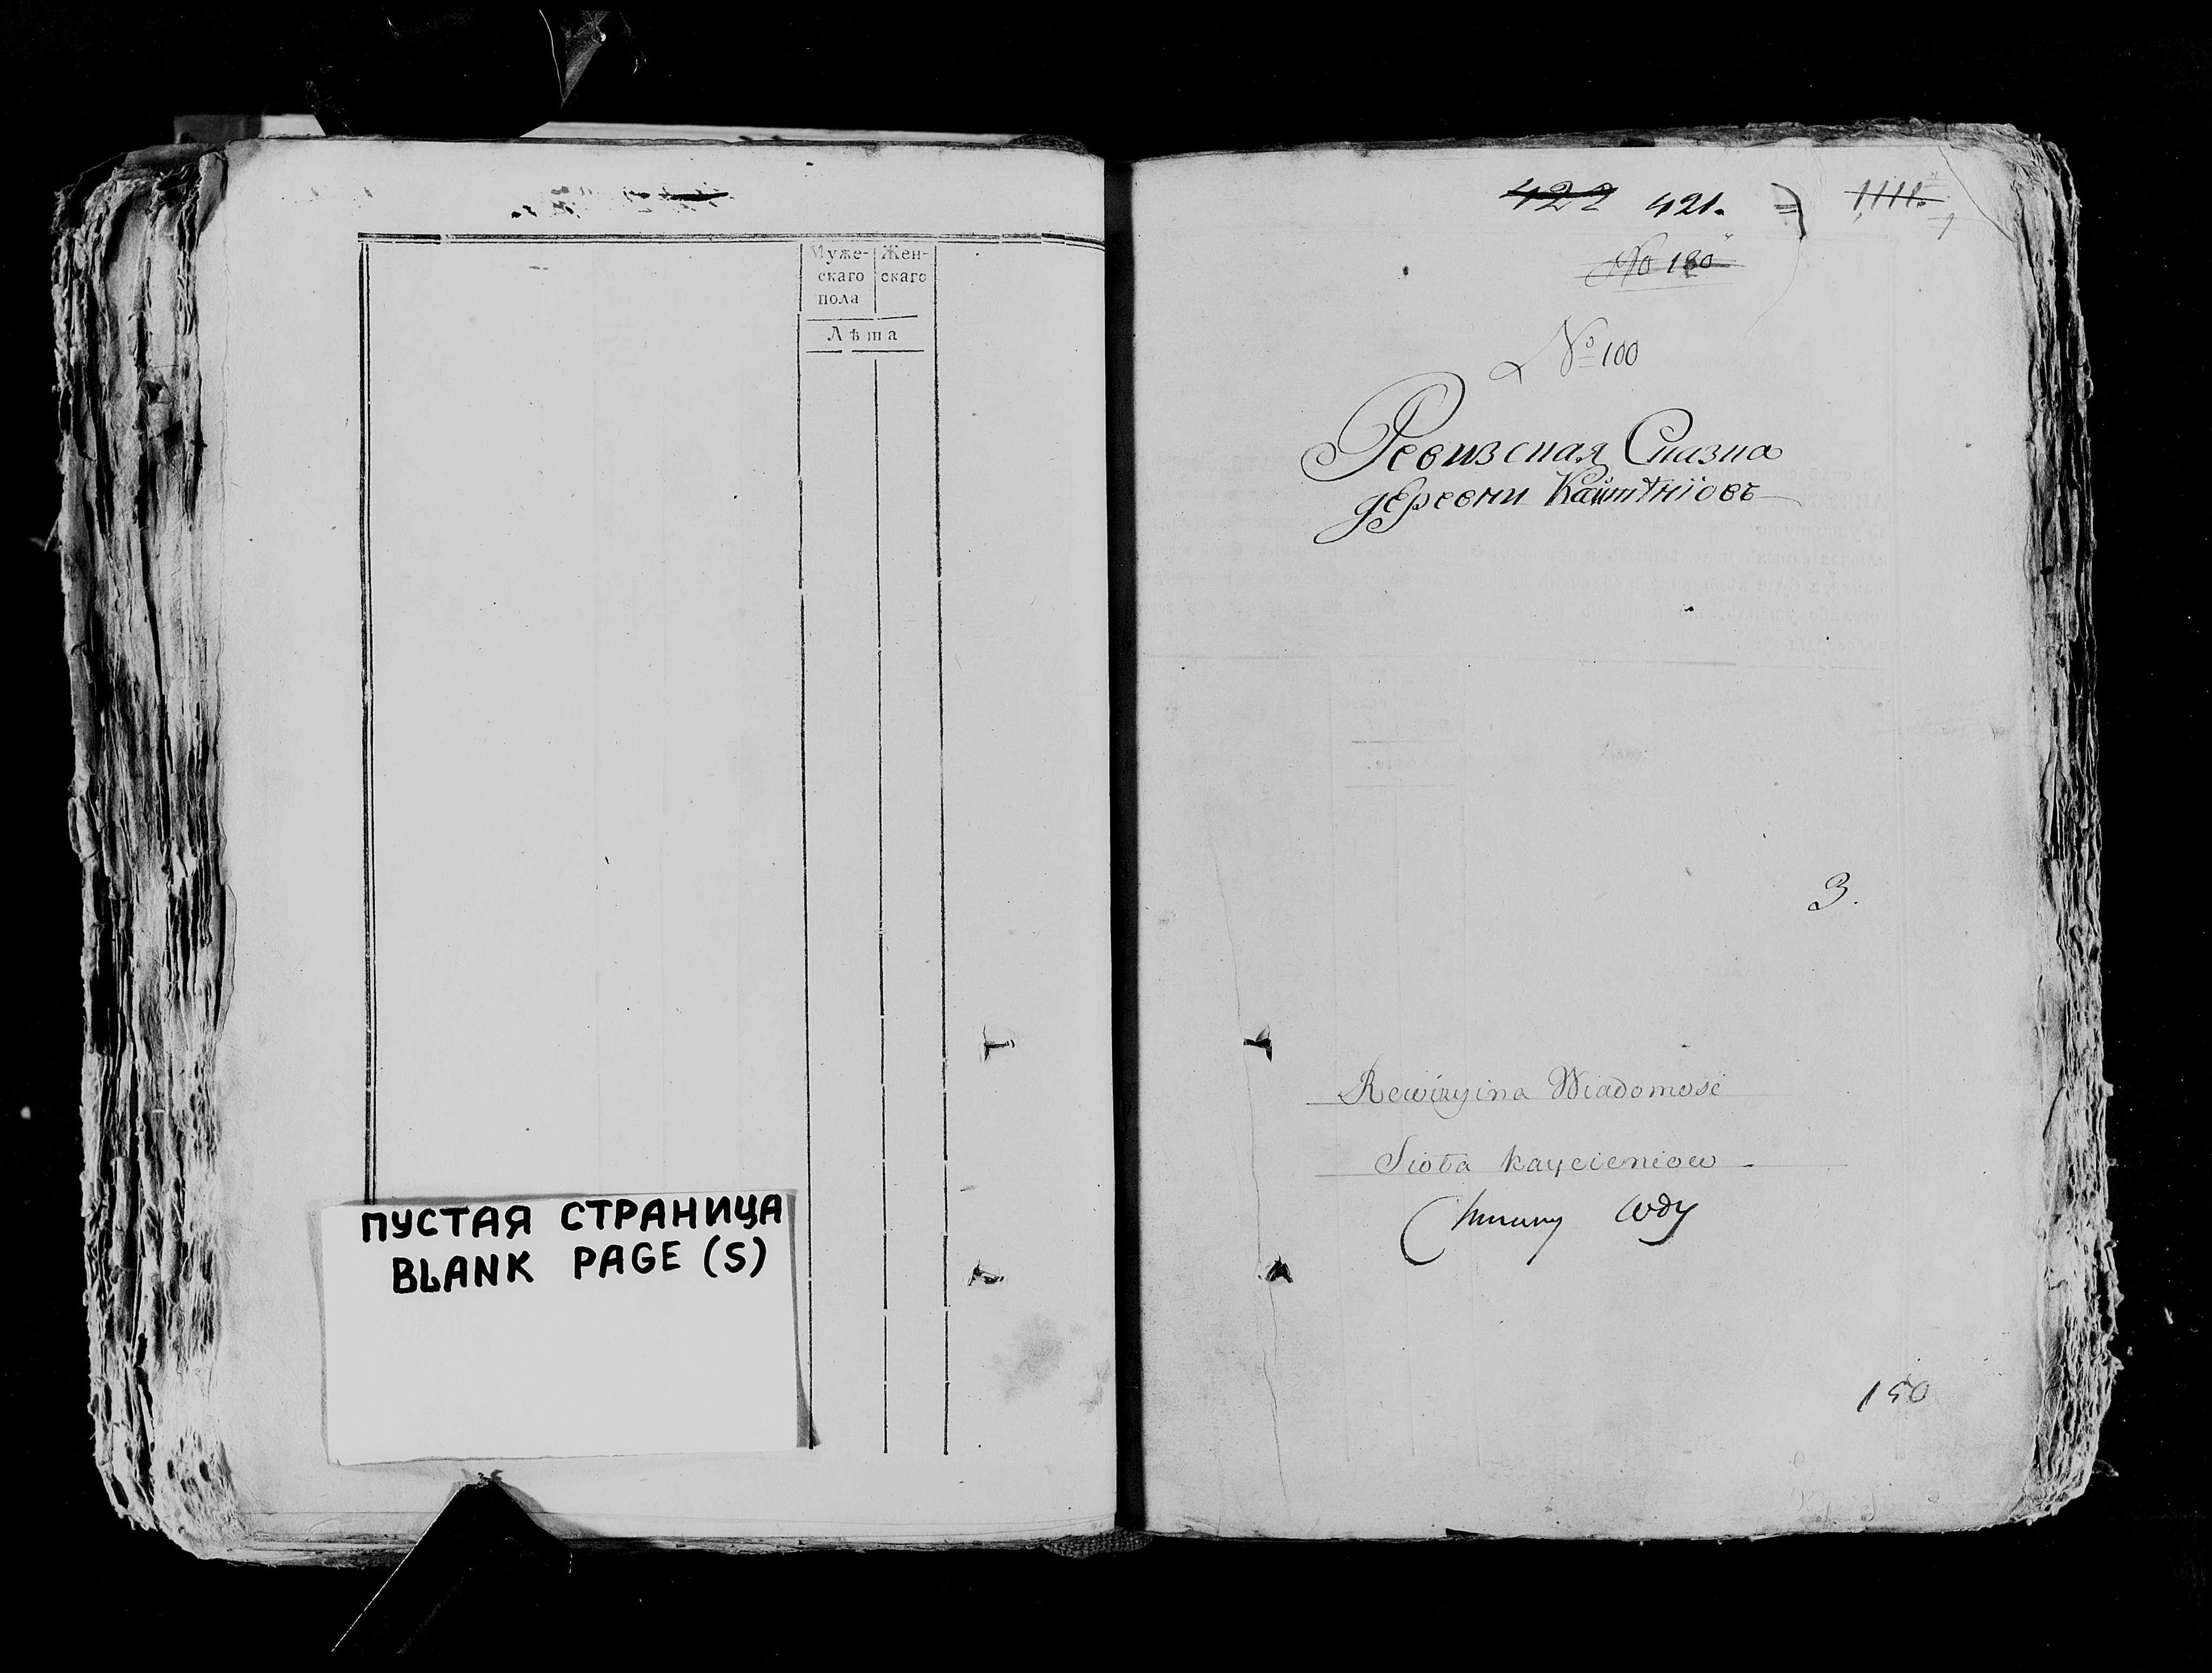 Муже- Жен-
скаго скаго
пола
Лѣта
ПУСТАЯ СТРАНИЦА
BLANK PAGE (S)
422 421. 1111.
No 180
№ 100
Ревизская Сказка
деревни Кайтѣніовъ
3.
Rewizyina Wiadomość
Sioła Kaycieniow
150